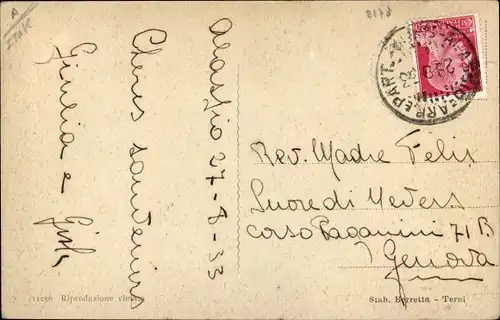 A
ITAL
2178
Alassio 27-8-33
Chers souvenirs
Giulia e
Rev. Madre Felix
Suore di Nevers
corso Paganini 71B
Genova
11256 Riproduzione vietata
Stab. Berretta - Terni